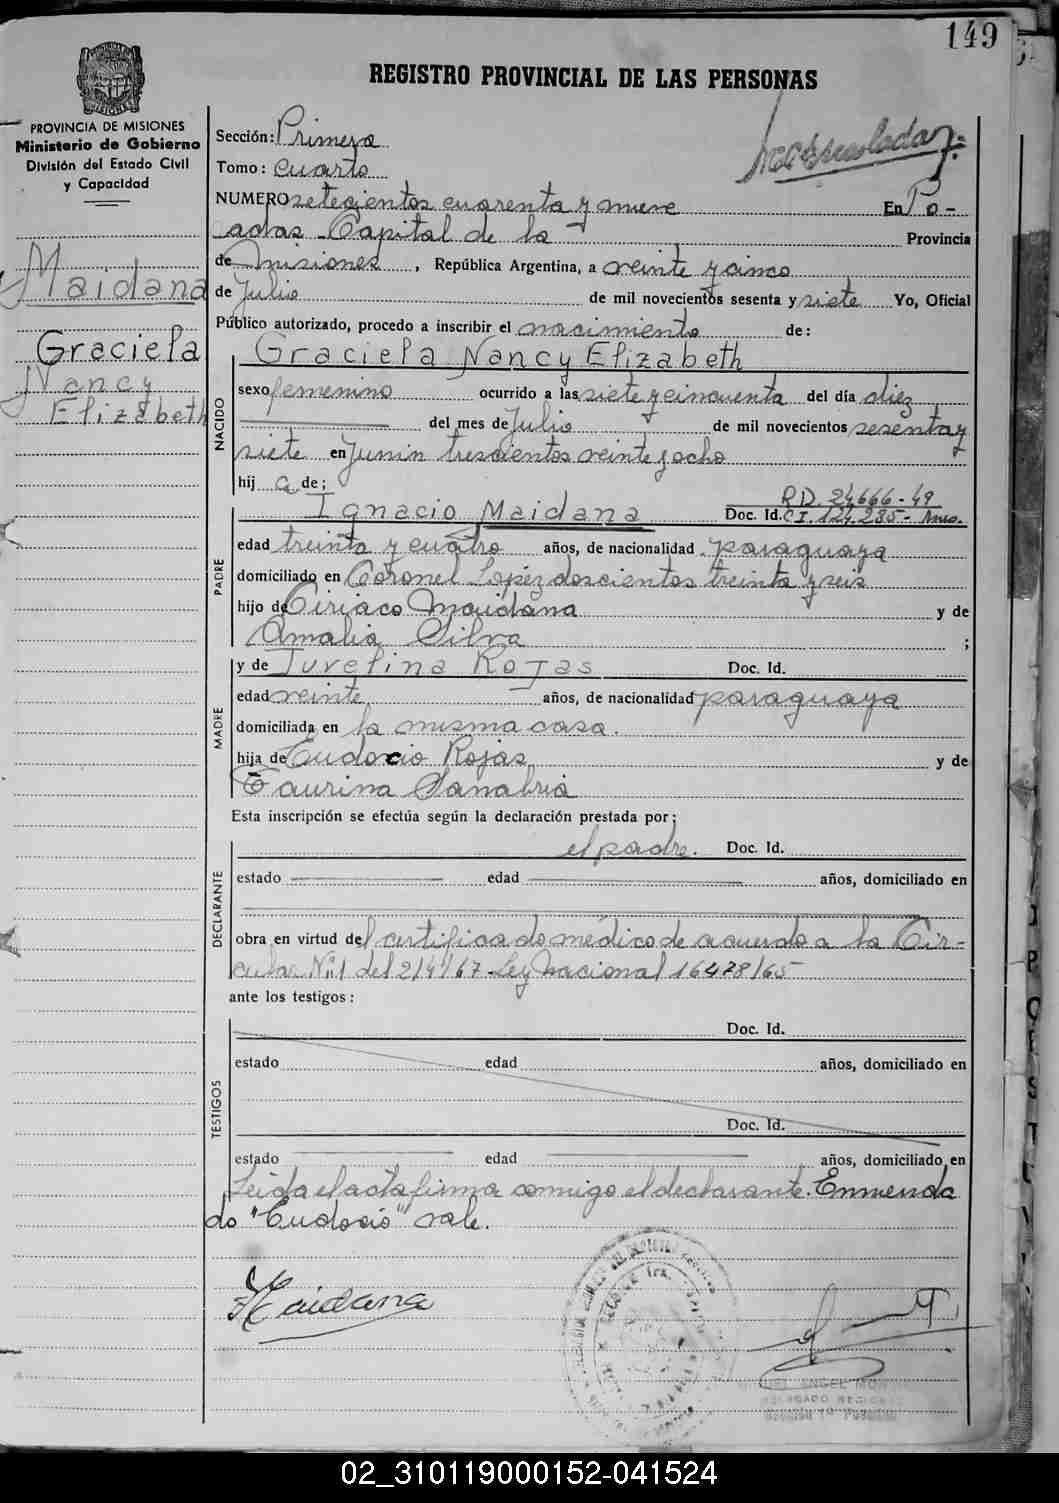 149
REGISTRO PROVINCIAL DE LAS PERSONAS
PROVINCIA DE MISIONES
Ministerio de Gobierno
División del Estado Civil
y Capacidad
Maidana
Graciela
Nancy
Elizabeth
Sección: Primera
Tomo: cuarto
NUMERO setecientos cuarenta y nueve En Po-
adas Capital de la Provincia
de Misiones, República Argentina, a veinte y cinco
de Julio de mil novecientos sesenta y siete Yo, Oficial
Público autorizado, procedo a inscribir el nacimiento de:
NACIDO
Graciela Nancy Elizabeth
sexo femenino ocurrido a las siete y cincuenta del día diez
del mes de Julio de mil novecientos sesenta y
siete en Junin trescientos veinte y ocho
hij a de:
PADRE
R.D. 24,666-49
Ignacio Maidana Doc. Id. C.I. 124.235- Mnes.
edad treinta y cuatro años, de nacionalidad paraguaya
domiciliado en Coronel Lopez doscientos treinta y seis
hijo de Ciriaco Maidana y de
Amalia Silva ;
MADRE
y de Juvelina Rojas Doc. Id.
edad veinte años, de nacionalidad paraguaya
domiciliada en la misma casa.
hija de Eudocio Rojas y de
Taurina Sanabria
Esta inscripción se efectúa según la declaración prestada por:
DECLARANTE
el padre. Doc. Id.
estado edad años, domiciliado en
obra en virtud del certificado médico de acuerdo a la Cir-
cular Nº1 del 2/4/67 Ley Nacional 16478/65
ante los testigos:
TESTIGOS
Doc. Id.
estado edad años, domiciliado en
Doc. Id.
estado edad años, domiciliado en
Leida el acta firma conmigo el declarante. Enmenda
do "Eudocio" vale.
Maidana
MIGUEL ANGEL
DELEGADO REGIONAL
02_310119000152-041524